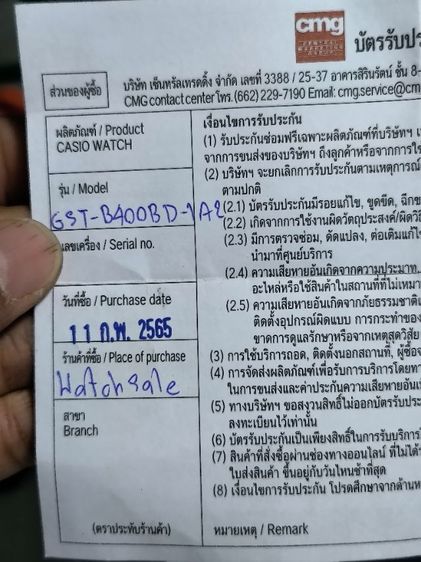 cmg
CENTRAL
MARKETING
GROUP
บัตรรับประ
ส่วนของผู้ซื้อ
บริษัท เซ็นทรัลเทรดดิ้ง จำกัด เลขที่ 3388 / 25-37 อาคารสิรินรัตน์ ชั้น 8-
CMG contact center โทร. (662) 229-7190 Email: cmg.service@cm
ผลิตภัณฑ์ / Product
CASIO WATCH
รุ่น / Model
GST-B400BD-1A2
เลขเครื่อง / Serial no.
วันที่ซื้อ / Purchase date
11 ก.พ. 2565
ร้านค้าที่ซื้อ / Place of purchase
Watchsale
สาขา
Branch
(ตราประทับร้านค้า)
เงื่อนไขการรับประกัน
(1) รับประกันซ่อมฟรีเฉพาะผลิตภัณฑ์ที่บริษัทฯ
จากการขนส่งของบริษัทฯ ถึงลูกค้าหรือจากการใช้
(2) บริษัทฯ จะยกเลิกการรับประกันตามเหตุการณ์
ตามปกติ
(2.1) บัตรรับประกันมีรอยแก้ไข, ขูดขีด, ฉีกข
(2.2) เกิดจากการใช้งานผิดวัตถุประสงค์/ผิดวิธี
(2.3) มีการตรวจซ่อม, ดัดแปลง, ต่อเติมแก้ไ
นำมาที่ศูนย์บริการ
(2.4) ความเสียหายอันเกิดจากความประมาท,
อะไหล่หรือใช้สินค้าในสถานที่ที่ไม่เหมา
(2.5) ความเสียหายอันเกิดจากภัยธรรมชาติ
ติดตั้งอุปกรณ์ผิดแบบ การกระทำของ
ขาดการดูแลรักษาหรือจากเหตุสุดวิสัย
(3) การใช้บริการถอด, ติดตั้งนอกสถานที่, ผู้ซื้อจ
(4) การจัดส่งผลิตภัณฑ์เพื่อรับการบริการโดยทา
ในการขนส่งและค่าประกันความเสียหายอันเ
(5) ทางบริษัทฯ ขอสงวนสิทธิ์ไม่ออกบัตรรับประ
ลงทะเบียนไว้เท่านั้น
(6) บัตรรับประกันเป็นเพียงสิทธิ์ในการรับบริการ
(7) สินค้าที่สั่งซื้อผ่านช่องทางออนไลน์ ที่ไม่ได้
ใบส่งสินค้า ขึ้นอยู่กับวันไหนช้าที่สุด
(8) เงื่อนไขการรับประกัน โปรดศึกษาจากด้านห
หมายเหตุ / Remark